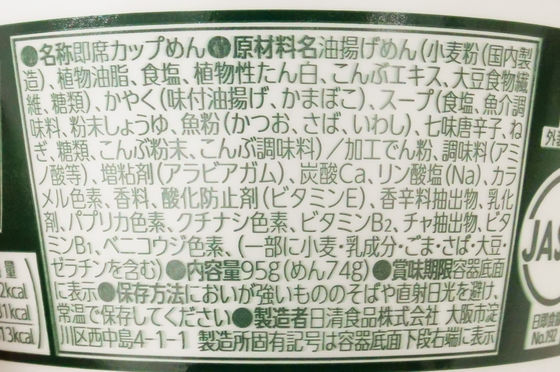 ●名称即席カップめん●原材料名油揚げめん(小麦粉(国内製
造)、植物油脂、食塩、植物性たん白、こんぶエキス、大豆食物繊
維、糖類)、かやく(味付油揚げ、かまぼこ)、スープ(食塩、魚介調
味料、粉末しょうゆ、魚粉(かつお、さば、いわし)、七味唐辛子、ね
ぎ、糖類、こんぶ粉末、こんぶ調味料)/加工でん粉、調味料(アミ
ノ酸等)、増粘剤(アラビアガム)、炭酸Ca、リン酸塩(Na)、カラ
メル色素、香料、酸化防止剤(ビタミンE)、香辛料抽出物、乳化
剤、パプリカ色素、クチナシ色素、ビタミンB2、チャ抽出物、ビタ
ミンB1、ベニコウジ色素、(一部に小麦・乳成分・ごま・さば・大豆・
ゼラチンを含む)●内容量95g(めん74g)●賞味期限容器底面
に表示●保存方法においが強いもののそばや直射日光を避け、
常温で保存してください●製造者日清食品株式会社 大阪市淀
川区西中島4-1-1 製造所固有記号は容器底面 下段右端に表示
量
2kcal
31kcal
13kcal
JAS
No.192